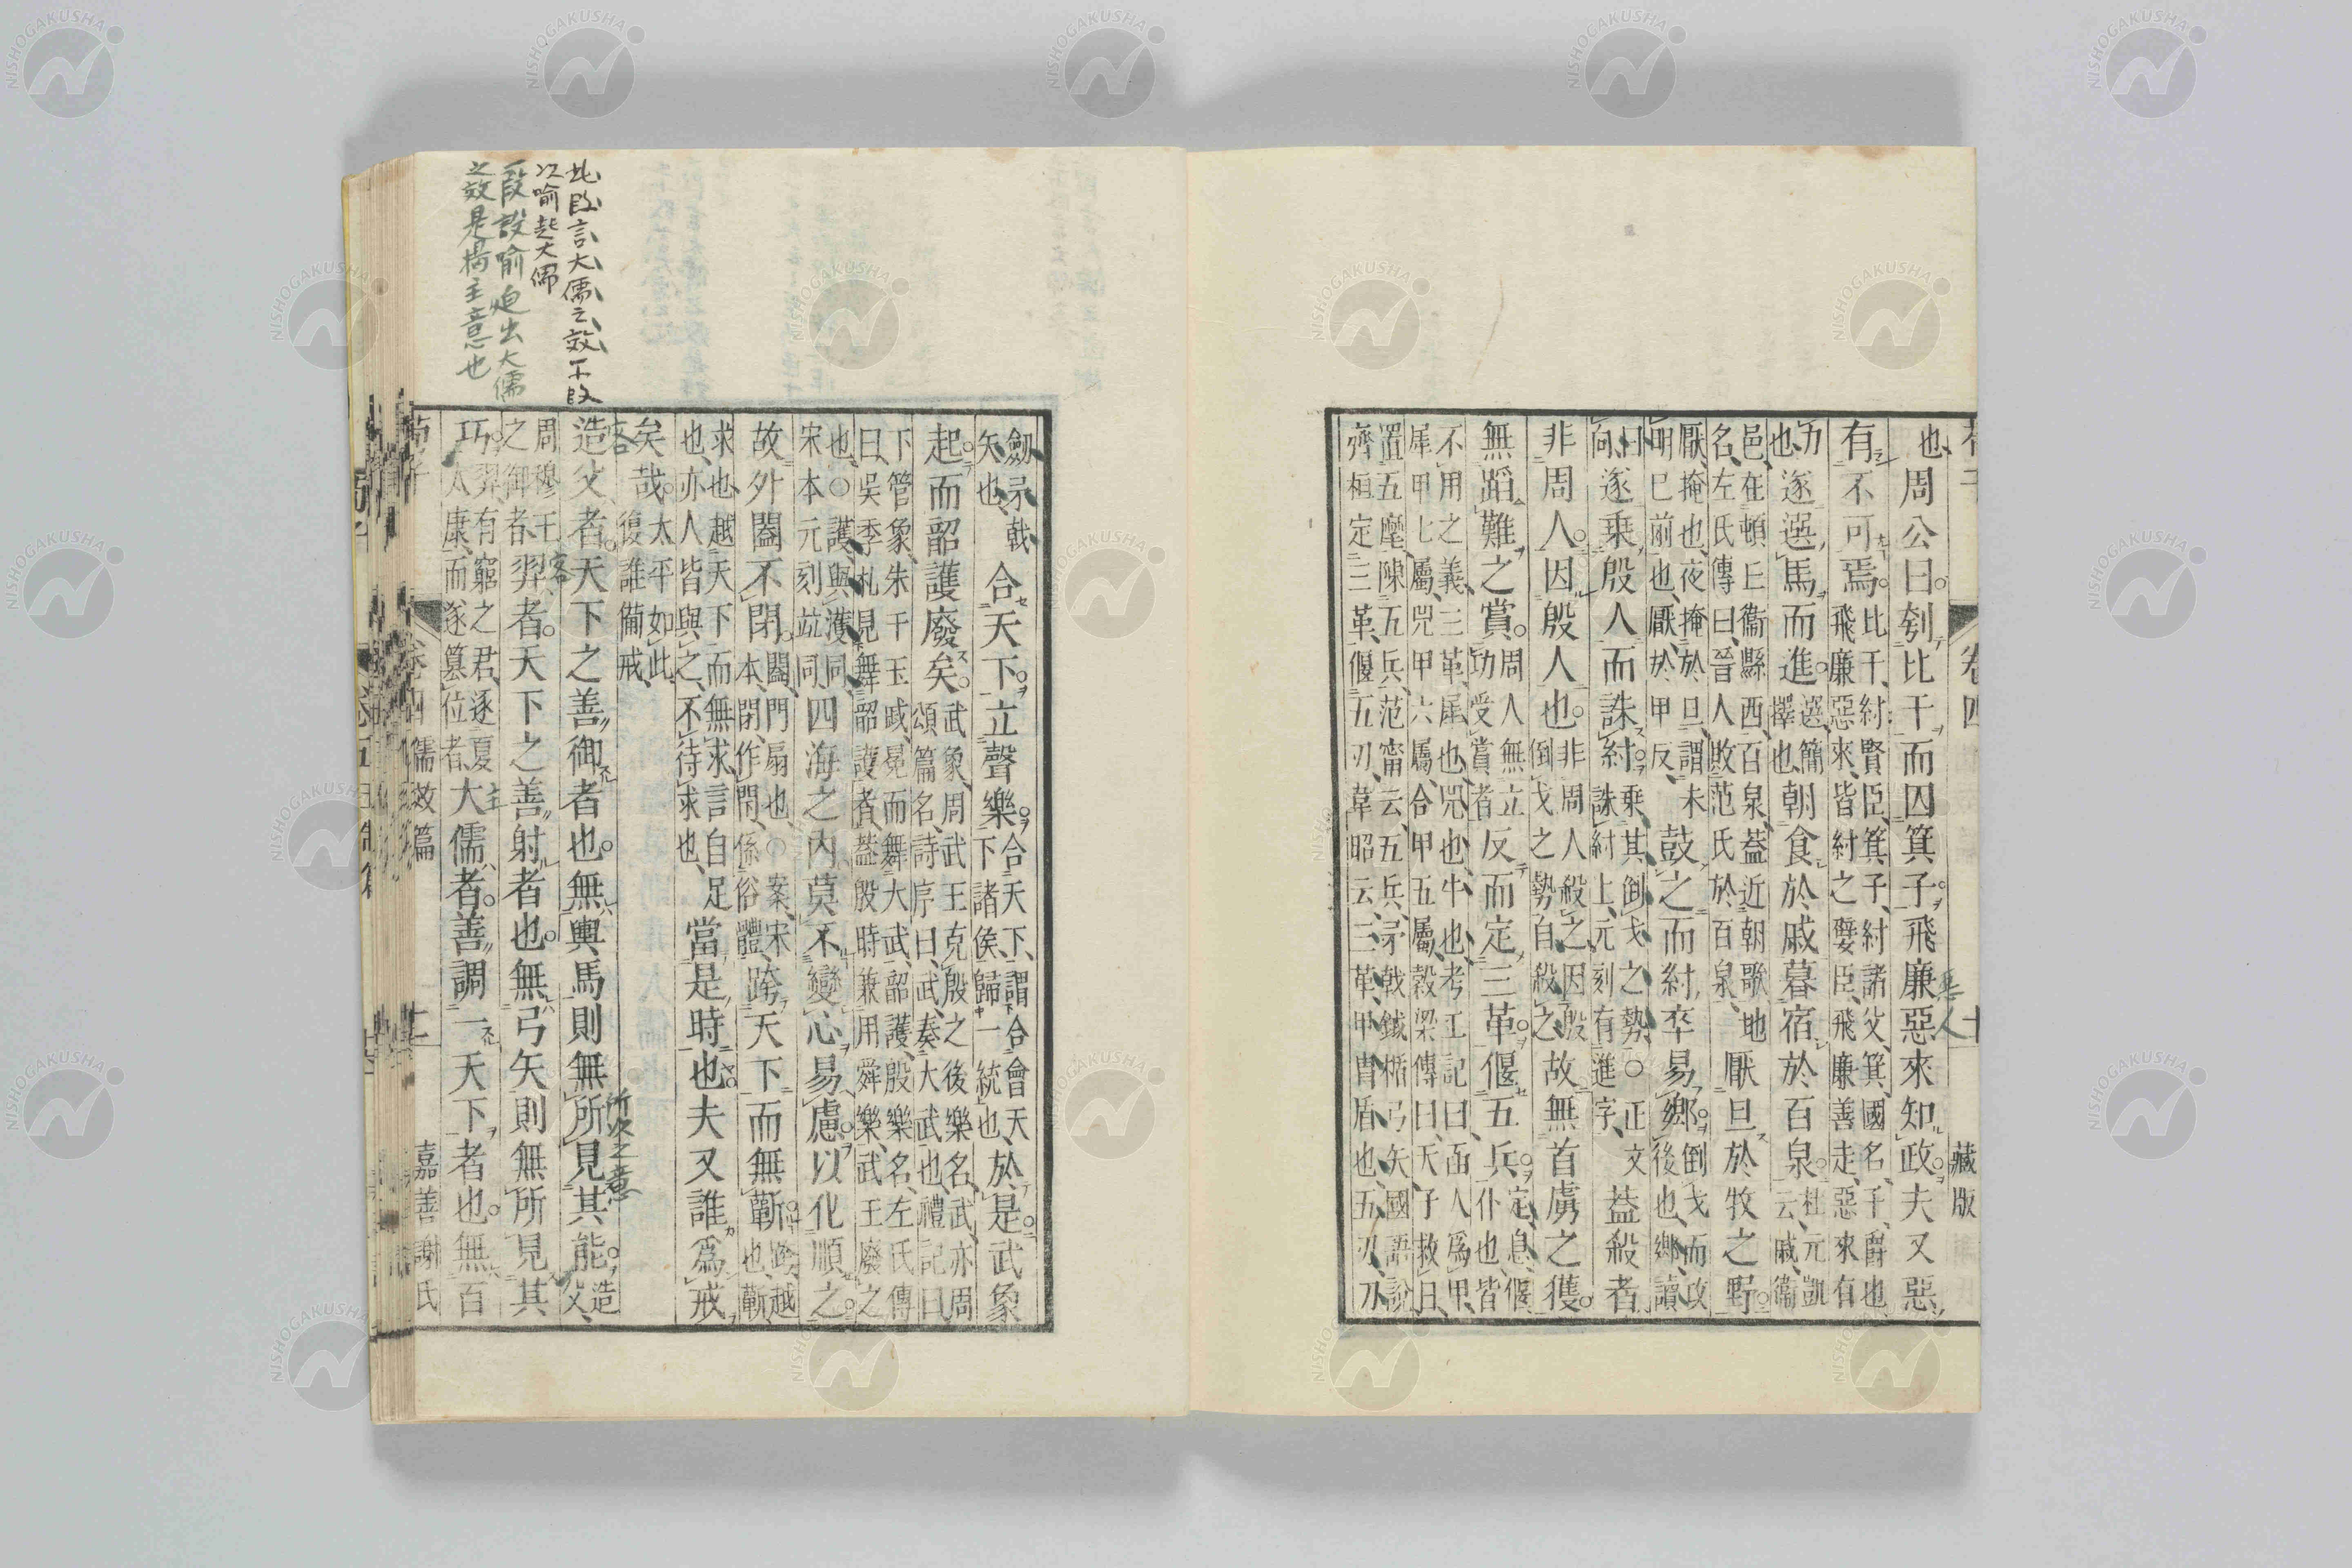 藏版
也周公曰刳比干而囚箕子飛廉惡來知政夫又惡
有不可焉比干紂賢臣箕子紂諸父箕國名子爵也
飛廉惡來皆紂之嬖臣飛廉善走惡來有
力也遂選馬而進選簡擇也朝食於戚暮宿於百泉杜元凱云戚衞
邑在頓丘衞縣西百泉蓋近朝歌地
名左氏傳曰晉人敗范氏於百泉厭旦於牧之野
厭掩也夜掩於旦謂未
明已前也厭於甲反鼓之而紂卒易鄉倒戈而攻後也鄉讀
曰向遂乘殷人而誅紂乘其倒戈之勢○正文
誅紂上元刻有進字蓋殺者
非周人因殷人也非周人殺之因殷
倒戈之勢自殺之故無首虜之獲
無蹈難之賞周人無立功受賞者反而定三革偃五兵定息偃仆也皆
不用之義三革犀也兕也牛也考工記曰函人爲甲
犀甲七屬兕甲六屬合甲五屬穀梁傳曰天子救日
置五麾陳五兵范甯云五兵矛戟鉞楯弓矢國語說
齊桓定三革偃五刃韋昭云三革甲冑盾也五刃刀
劒矛戟
矢也合天下立聲樂合天下謂合會天
下諸侯歸一統也於是武象
起而韶護廢矣武象周武王克殷之後樂名武亦周
頌篇名詩序曰武奏大武也禮記曰
下管象朱干玉戚冕而舞大武韶護殷樂名左氏傳
曰吳季札見舞韶護者蓋殷時兼用舜樂武王廢之
也○護與濩同
宋本元刻竝同四海之內莫不變心易慮以化順之
故外闔不閉闔門扇也○案宋
本閉作閇係俗體跨天下而無蘄跨越也蘄
求也越天下而無求言自足
也亦人皆與之不待求也當是時也夫又誰爲戒
矣哉太平如此
復誰備戒
造父者天下之善御者也無輿馬則無所見其能造父
周穆王
之御者羿者天下之善射者也無弓矢則無所見其
巧羿有窮之君逐夏
太康而遂篡位者大儒者善調一天下者也無百
卷四 儒效篇 嘉善謝氏
此段言大儒之效下段
以喻起大儒
段設喻迫出大儒
之效是揭主意也